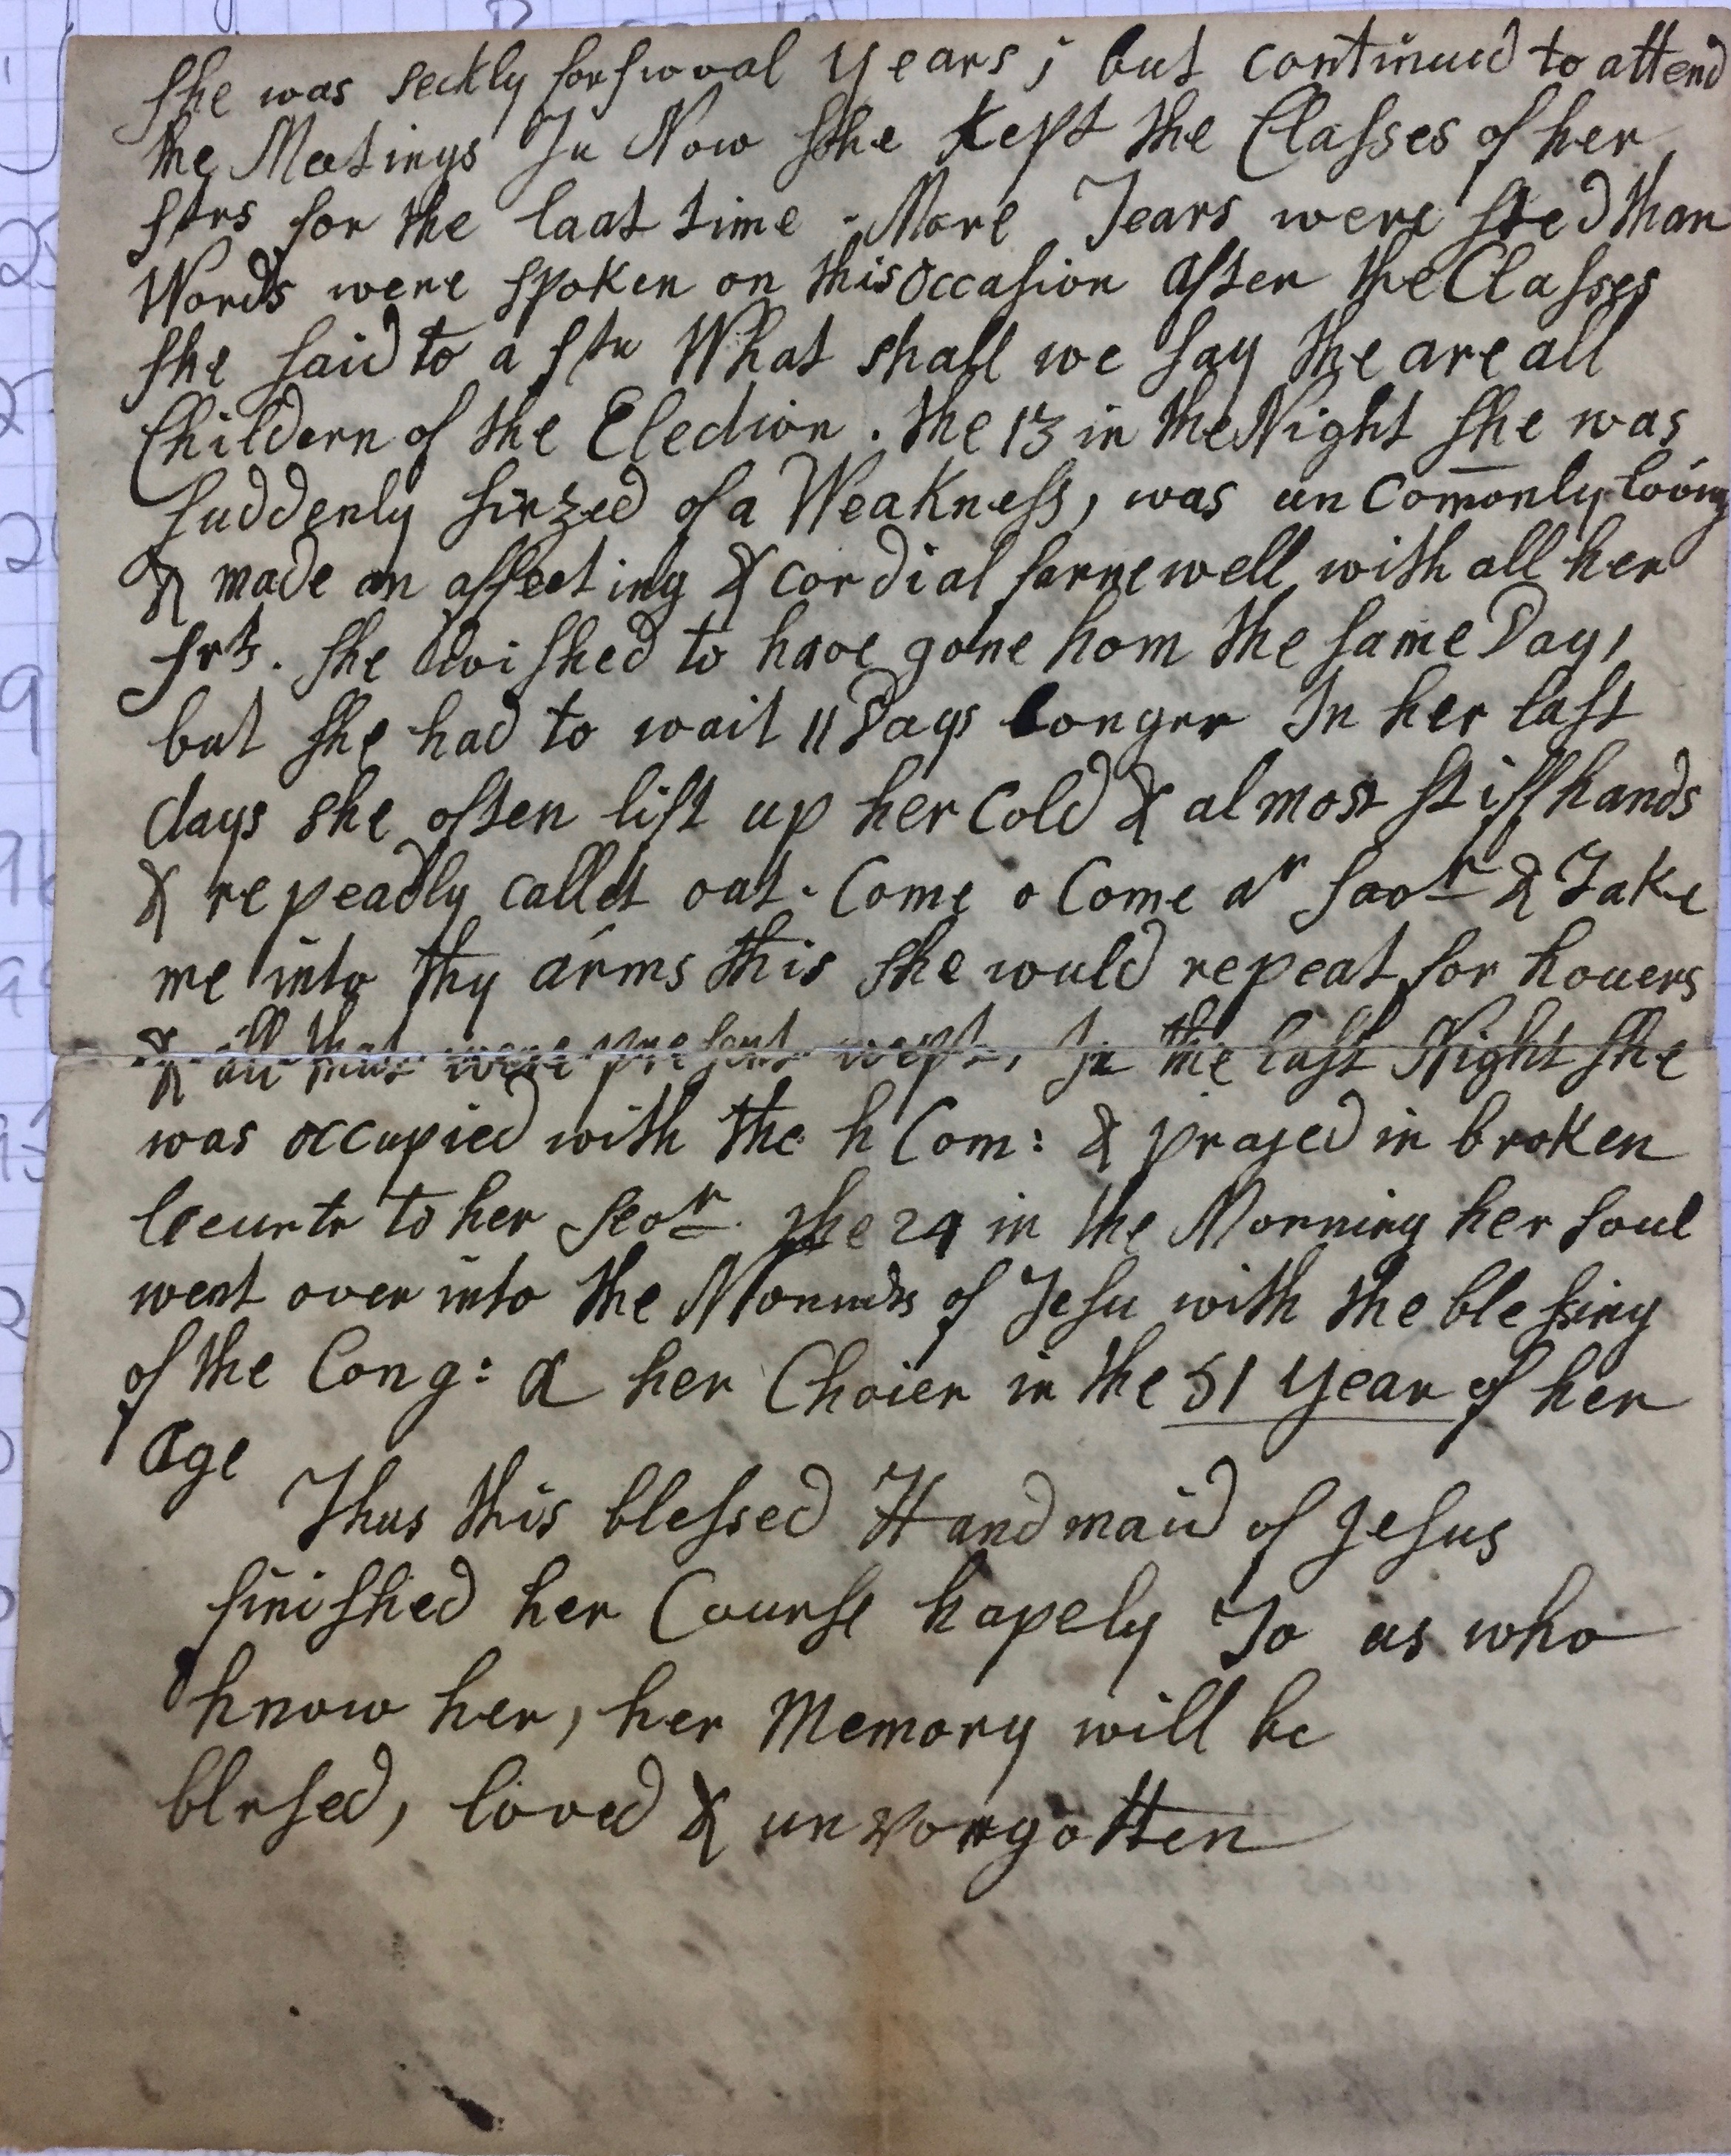 She was seckly for sevoal years; but continued to attend
the Meetings In Nov she kept the Classes of her
strs for the laat time - More Tears were sted than
Words were spoken on this occasion After the Classes
she said to a str What shall we say the are all
Childern of the Election. the 13 in the Night she was
suddenly siezed of a Weakness, was un comonly loving
& made an affecting & cordial farrewell with all her
srts. she wished to have gone hom the same Day,
but she had to wait 11 Days longer In her last
days she often lift up her Cold & almost stiff hands
& repeadly callet out. Come o Come dr Savr & Take
me into thy arms this she would repeat for houers
& all that were present wept, In the last Night she
was occupied with the h Com: & prajed in broken
to her Seor. The 24 in the Morning her soul
went over into the Wounds of Jesu with the blessing
of the Cong: & her Choier in the 51 year of her
Age
Thus this blessed Handmaid of Jesus
finished her Course hapely To us who
know her, her Memory will be
blesed, loved & unvorgotten